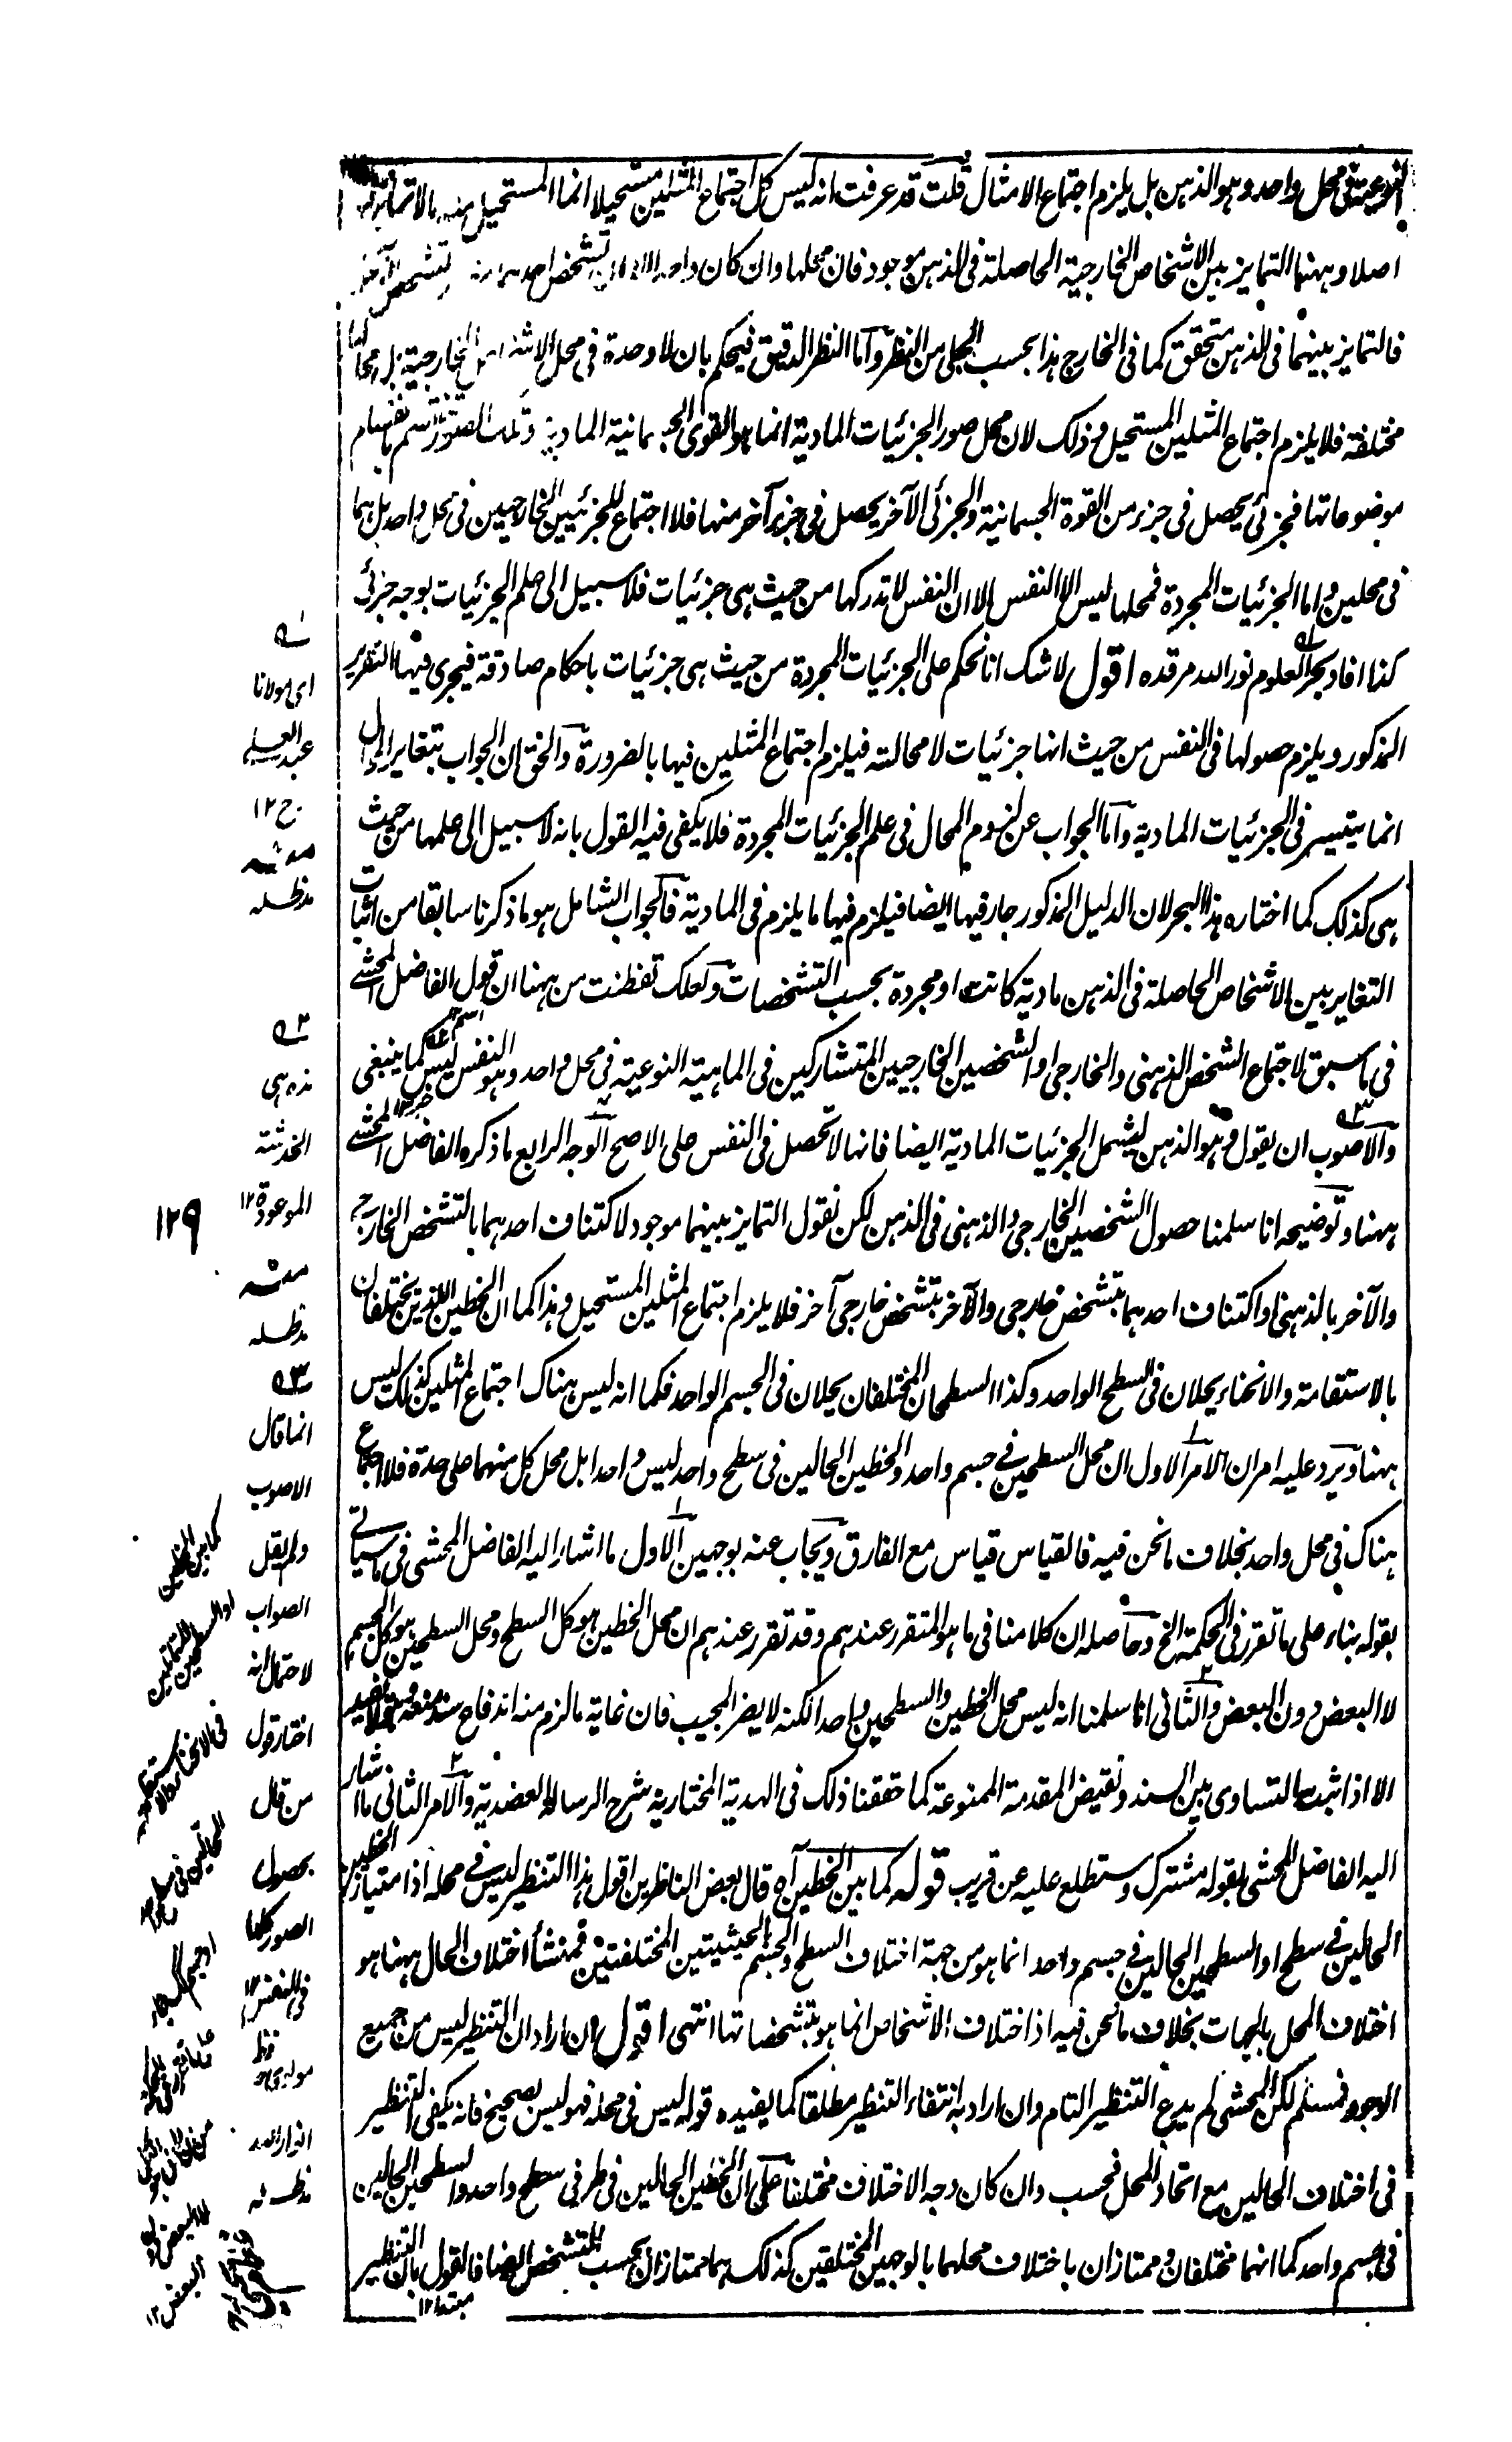 النوعية في محل واحد وهو الذهن بل يلزم اجتماع الامثال قلت قد عرفت انه ليس كل اجتماع المثلين مستحيلا انما المستحيل منه
اصلا وههنا التمايز بين الاشخاص الخارجية الحاصلة فى الذهن موجود فان محلها وان كان واحدا
فالتمايز بينهما فى الذهن متحقق كما فى الخارج هذا بحسب الجلي من النظر واما النظر الدقيق فيحكم بان لا وحدة في محل الاشخاص الخارجية بل محالها
مختلفة فلا يلزم اجتماع المثلين المستحيل وذلك لان محل صور الجزئيات المادية انما هو القوى الجسمانية المادية وتلك الصور تنقسم بانقسام
موضوعاتها فجزئي يحصل فى جزء من القوة الجسمانية والجزئى الآخر يحصل فى جزء آخر منها فلا اجتماع للجزئيين الخارجيين فى محل واحد بل هما
فى محلين واما الجزئيات المجردة فمحلها ليس الا النفس الا ان النفس لا تدركها من حيث هى جزئيات فلا سبيل الى علم الجزئيات بوجه جزئى
كذا افاد بحر العلوم نور الله مرقده اقول لا شك انا نحكم على الجزئيات المجردة من حيث هى جزئيات باحكام صادقة فيجرى فيها التقرير
المذكور ويلزم حصولها فى النفس من حيث انها جزئيات لا محالة فيلزم اجتماع المثلين فيها بالضرورة والحق ان الجواب بتغاير المحل
انما يتيسر فى الجزئيات المادية واما الجواب عن لزوم المحال فى علم الجزئيات المجردة فلا يكفى فيه القول بانه لا سبيل الى علمها من حيث
هى كذلك كما اختاره هذا البحر لان الدليل المذكور جار فيها ايضا فيلزم فيها ما يلزم فى المادية فالجواب الشامل هو ما ذكرنا سابقا من اثبات
التغاير بين الاشخاص الحاصلة فى الذهن مادية كانت او مجردة بحسب التشخصات ولعلك تفطنت من ههنا ان قول الفاضل المحشے
فى ما سبق لاجتماع الشخص الذهنى والخارجى او الشخصين الخارجيين المتشاركين فى الماهية النوعية فى محل واحد وهو النفس ليس كما ينبغى
والاصوب ان يقول وهو الذهن ليشمل الجزئيات المادية ايضا فانها لا تحصل فى النفس على الاصح الوجه الرابع ما ذكره الفاضل المحشے
ههنا وتوضيحه انا سلمنا حصول الشخصين الخارجى والذهنى فى الذهن لكن نقول التمايز بينهما موجود لاكتناف احدهما بالتشخص الخارجے
والآخر بالذهنى او اكتناف احدهما بتشخص خارجى والآخر بتشخص خارجى آخر فلا يلزم اجتماع المثلين المستحيل وهذا كما ان الخطين اللذين يختلفان
بالاستقامة والانحناء يحلان فى السطح الواحد وكذا السطحان المختلفان يحلان فى الجسم الواحد فكما انه ليس هناك اجتماع المثلين كذلك ليس
ههنا ويرد عليه امران الامر الاول ان محل السطحين فے جسم واحد والخطين الحالين فى سطح واحد ليس واحدا بل محل كل منهما على حدة فلا اجتماع
هناك فى محل واحد بخلاف ما نحن فيه فالقياس قياس مع الفارق ويجاب عنه بوجهين الاول ما اشار اليه الفاضل المحشى فى ما سياتے
بقوله بناء على ما تقرر فى الحكمة الخ وحاصله ان كلامنا فى ما هو المتقرر عندهم وقد تقرر عندهم ان محل الخطين هو كل السطح ومحل السطحين هو كل الجسم
لا البعض دون البعض والثانى انا سلمنا انه ليس محل الخطين والسطحين واحدا لكنه لا يضر المجيب فان غاية ما لزم منه اندفاع سند منعه
الا اذا ثبت التساوى بين السند ونقيض المقدمة الممنوعة كما حققنا ذلك فى الهدية المختارية شرح الرسالة العضدية والامر الثانى ما اشار
اليه الفاضل المحشى بقوله مشترك وستطلع عليه عن قريب قوله كما بين الخطين آه قال بعض الناظرين اقول هذا التنظير ليس فے محله اذ امتياز الخطين
الحالين فے سطح او السطحين الحالين فے جسم واحد انما هو من جهة اختلاف السطح والجسم بالحيثيتين المختلفتين فمنشأ اختلاف الحال ههنا هو
اختلاف المحل بالجهات بخلاف ما نحن فيه اذ اختلاف الاشخاص انما هو بتشخصاتها انتهى اقول ان اراد ان التنظير ليس من جميع
الوجوه فمسلم لكن المحشى لم يدع التنظير التام وان اراد به انتفاء التنظير مطلقا كما يفيده قوله ليس فى محله فهو ليس بصحيح فانه يكفى التنظير
فى اختلاف الحالين مع اتحاد المحل فحسب وان كان وجه الاختلاف مختلفا على ان الخطين الحالين فى طرفى سطح واحد والسطحين الحالين
فى جسم واحد كما انهما مختلفان وممتازان باختلاف محلهما بالوجهين المختلفين كذلك هما ممتازان بحسب التشخص ايضا فالقول بان التنظير
مبتدا ١٢
اى مولانا
عبد العلے
ح ١٢
منه
مدظله
٢
هذه هى
الخدشة
الموعودة ١٢
منه
مدظله
٣
انما قال
الاصوب
ولم يقل
الصواب
لاحتمال انه
اختار قول
من قال
بحصول
الصور كلها
فى النفس ١٢
مولوى محمد
انوار الله
مدظله
١٢٩
كما بين الخطين
او السطحين
الحالين فى سطح واحد
البعض ١٢